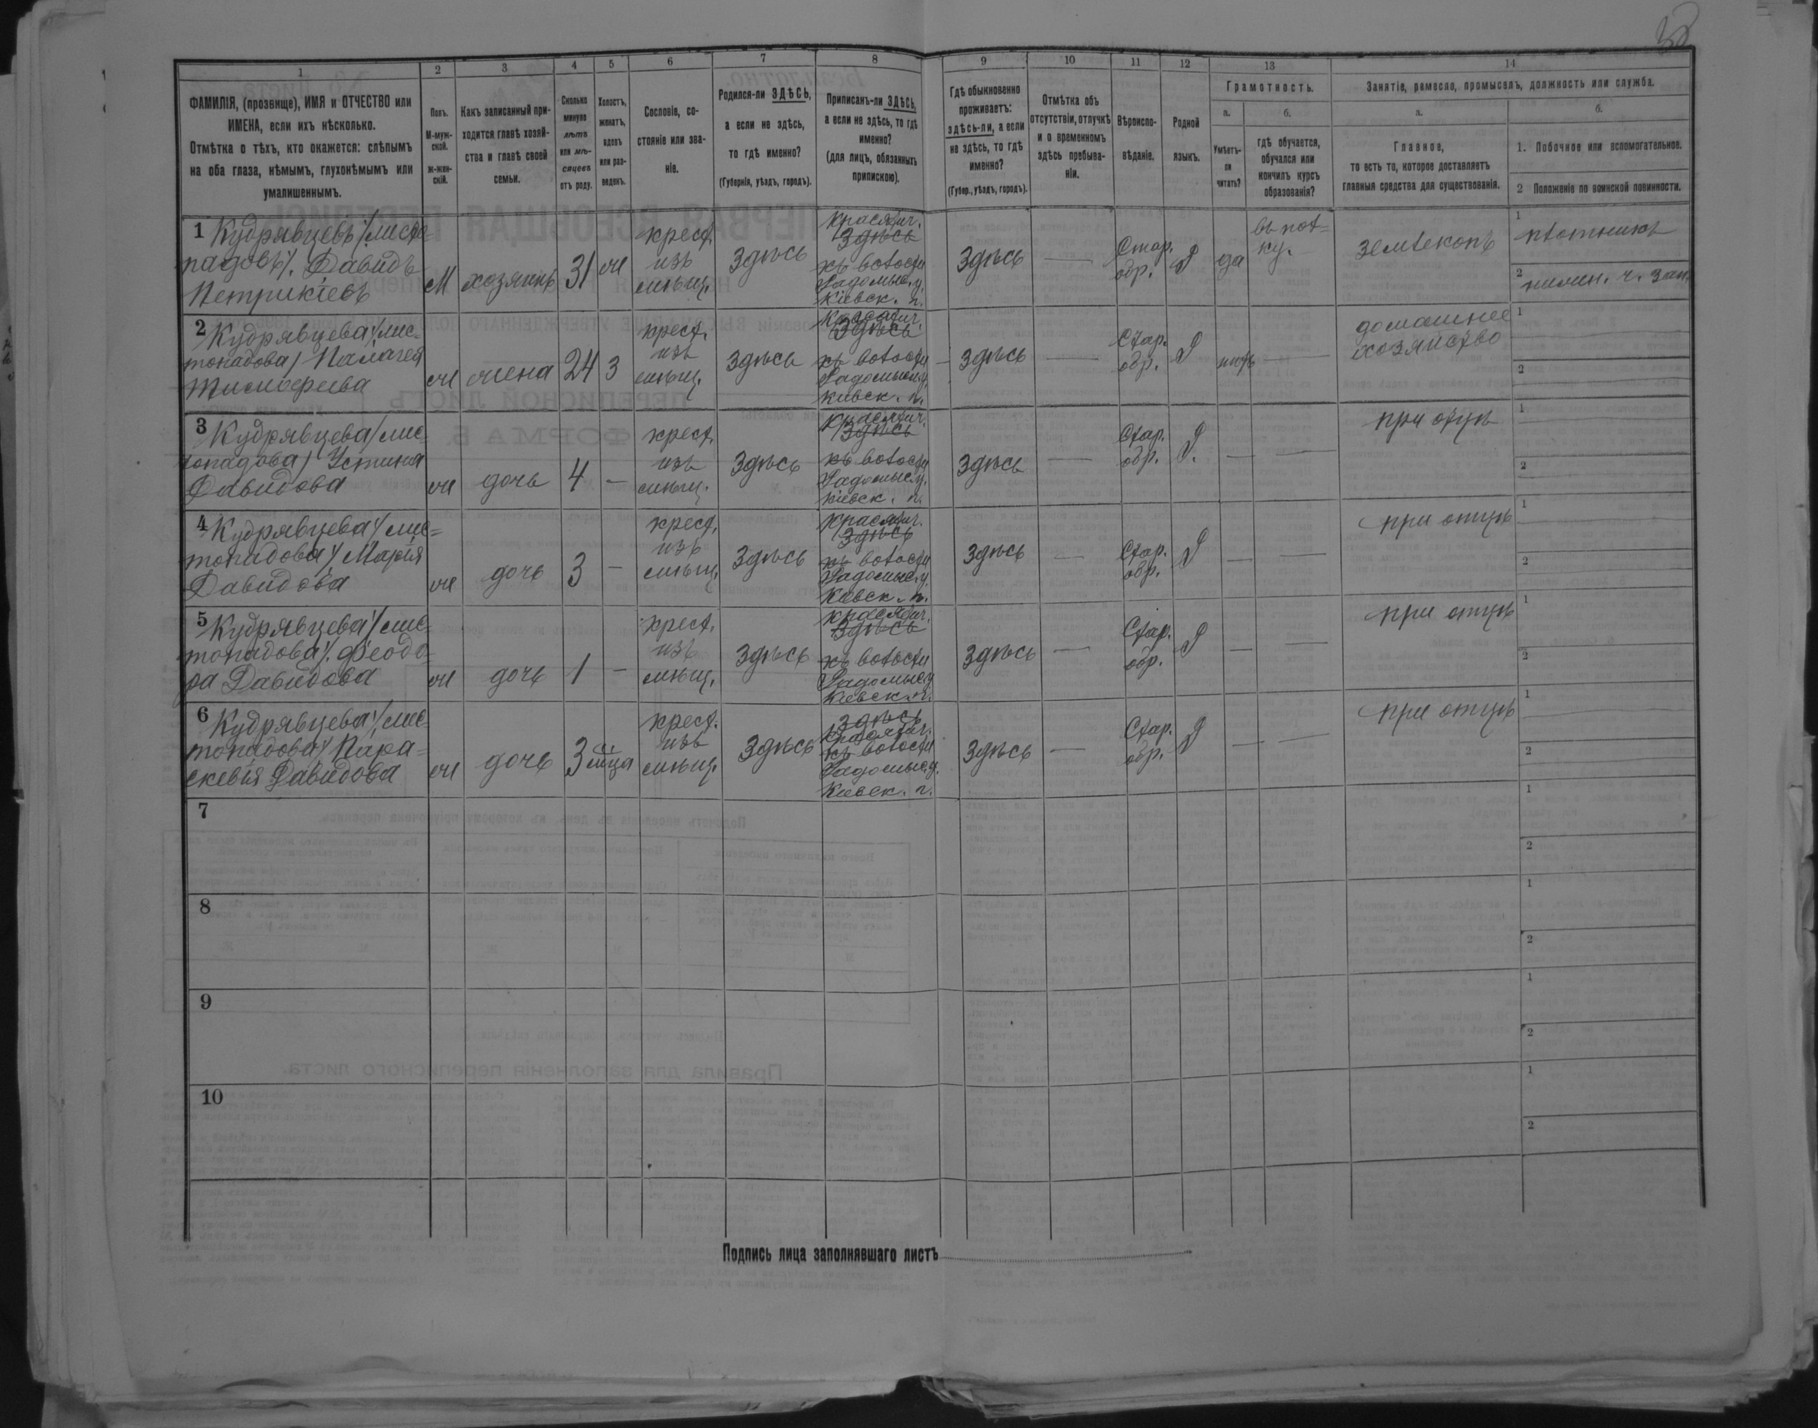 1
2
3
4
5
6
7
8
9
10
11
12
13
14
ФАМИЛІЯ, (прозвище), ИМЯ и ОТЧЕСТВО или
ИМЕНА, если ихъ нѣсколько.
Отмѣтка о тѣхъ, кто окажется: слѣпымъ
на оба глаза, нѣмымъ, глухонѣмымъ или
умалишеннымъ.
Полъ.
М-муж-
ской.
ж-жен-
скій.
Какъ записанный при-
ходится главѣ хозяй-
ства и главѣ своей
семьи.
Сколько
минуло
лѣтъ
или мѣ-
сяцевъ
отъ роду.
Холостъ,
женатъ,
вдовъ
или раз-
веденъ.
Сословіе, со-
стояніе или зва-
ніе.
Родился-ли ЗДѢСЬ,
а если не здѣсь,
то гдѣ именно?
(Губернія, уѣздъ, городъ).
Приписанъ-ли ЗДѢСЬ,
а если не здѣсь, то гдѣ
именно?
(для лицъ, обязанныхъ
припискою).
Гдѣ обыкновенно
проживаетъ:
здѣсь-ли, а если
не здѣсь, то гдѣ
именно?
(Губер., уѣздъ, городъ).
Отмѣтка объ
отсутствіи, отлучкѣ
и о временномъ
здѣсь пребыва-
ніи.
Вѣроиспо-
вѣданіе.
Родной
языкъ.
Грамотность.
а.
Умѣетъ-
ли
читать?
б.
гдѣ обучается,
обучался или
кончилъ курсъ
образованія?
Занятіе, ремесло, промыселъ, должность или служба.
а.
Главное,
то есть то, которое доставляетъ
главныя средства для существованія.
б.
1. Побочное или вспомогательное.
2 Положеніе по воинской повинности.
1 Кудрявцевъ (листо-
падовъ). Давидъ
Петрикіевъ
М
хозяинъ
31
ж
крест.
изъ
мѣщ.
Здѣсь
Здѣсь
къ волости
Радомыс.у.
Кіевск. г.
Здѣсь
Стар.
обр.
да
землекопъ
1 плотникъ
2
2 Кудрявцева (лис-
топадова) Палагея
Тимофеева
ж
жена
24
З
крест.
изъ
мѣщ.
Здѣсь
Здѣсь
къ волости
Радомыс.у.
Кіевск. г.
Здѣсь
Стар.
обр.
нѣтъ
домашнее
хозяйство
1
2
3 Кудрявцева (лис-
топадова) Устинья
Давидова
ж
дочь
4
крест.
изъ
мѣщ.
Здѣсь
Здѣсь
къ волости
Радомыс.у.
Кіевск. г.
Здѣсь
Стар.
обр.
при отцѣ
1
2
4 Кудрявцева (лис-
топадова) Марія
Давидова
ж
дочь
3
крест.
изъ
мѣщ.
Здѣсь
Здѣсь
къ волости
Радомыс.у.
Кіевск. г.
Здѣсь
Стар.
обр.
при отцѣ
1
2
5 Кудрявцева (лис-
топадова). Феодо-
ра Давидова
ж
дочь
1
крест.
изъ
мѣщ.
Здѣсь
Здѣсь
къ волости
Радомыс.у.
Кіевск. г.
Здѣсь
Стар.
обр.
при отцѣ
1
2
6 Кудрявцева (лис-
топадова) Пара-
скевія Давидова
ж
дочь
3 м-ца
крест.
изъ
мѣщ.
Здѣсь
Здѣсь
къ волости
Радомыс.у.
Кіевск. г.
Здѣсь
Стар.
обр.
при отцѣ
1
2
7
1
2
8
1
2
9
1
2
10
1
2
Подпись лица заполнявшаго листъ